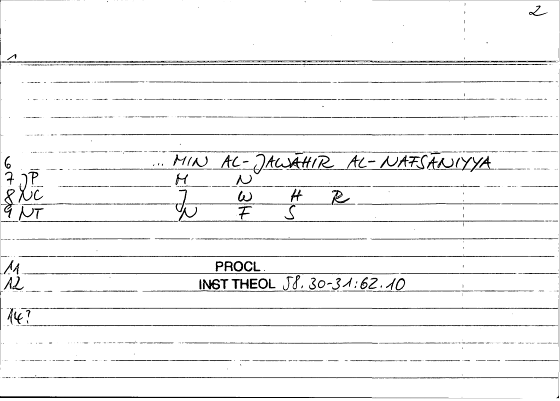 2
1
6 ... MIN AL-JAWĀHIR AL-NAFSĀNIYYA
7 JP M N
8 NC J W H R
9 NT N F S
11 PROCL
12 INST THEOL 58.30-31:62.10
14?